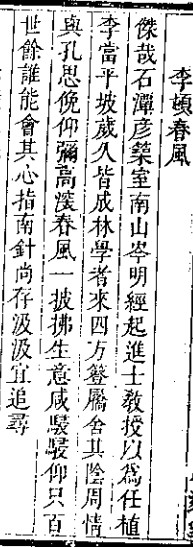 李頓春風
傑哉石潭彥築室南山岑明經起進士教授以爲任植
李當平坡歲久皆成林學者來四方簦屩舍其陰周情
與孔思俛仰彌高深春風一披拂生意咸駸駸仰只百
世餘誰能會其心指南針尚存汲汲宜追尋